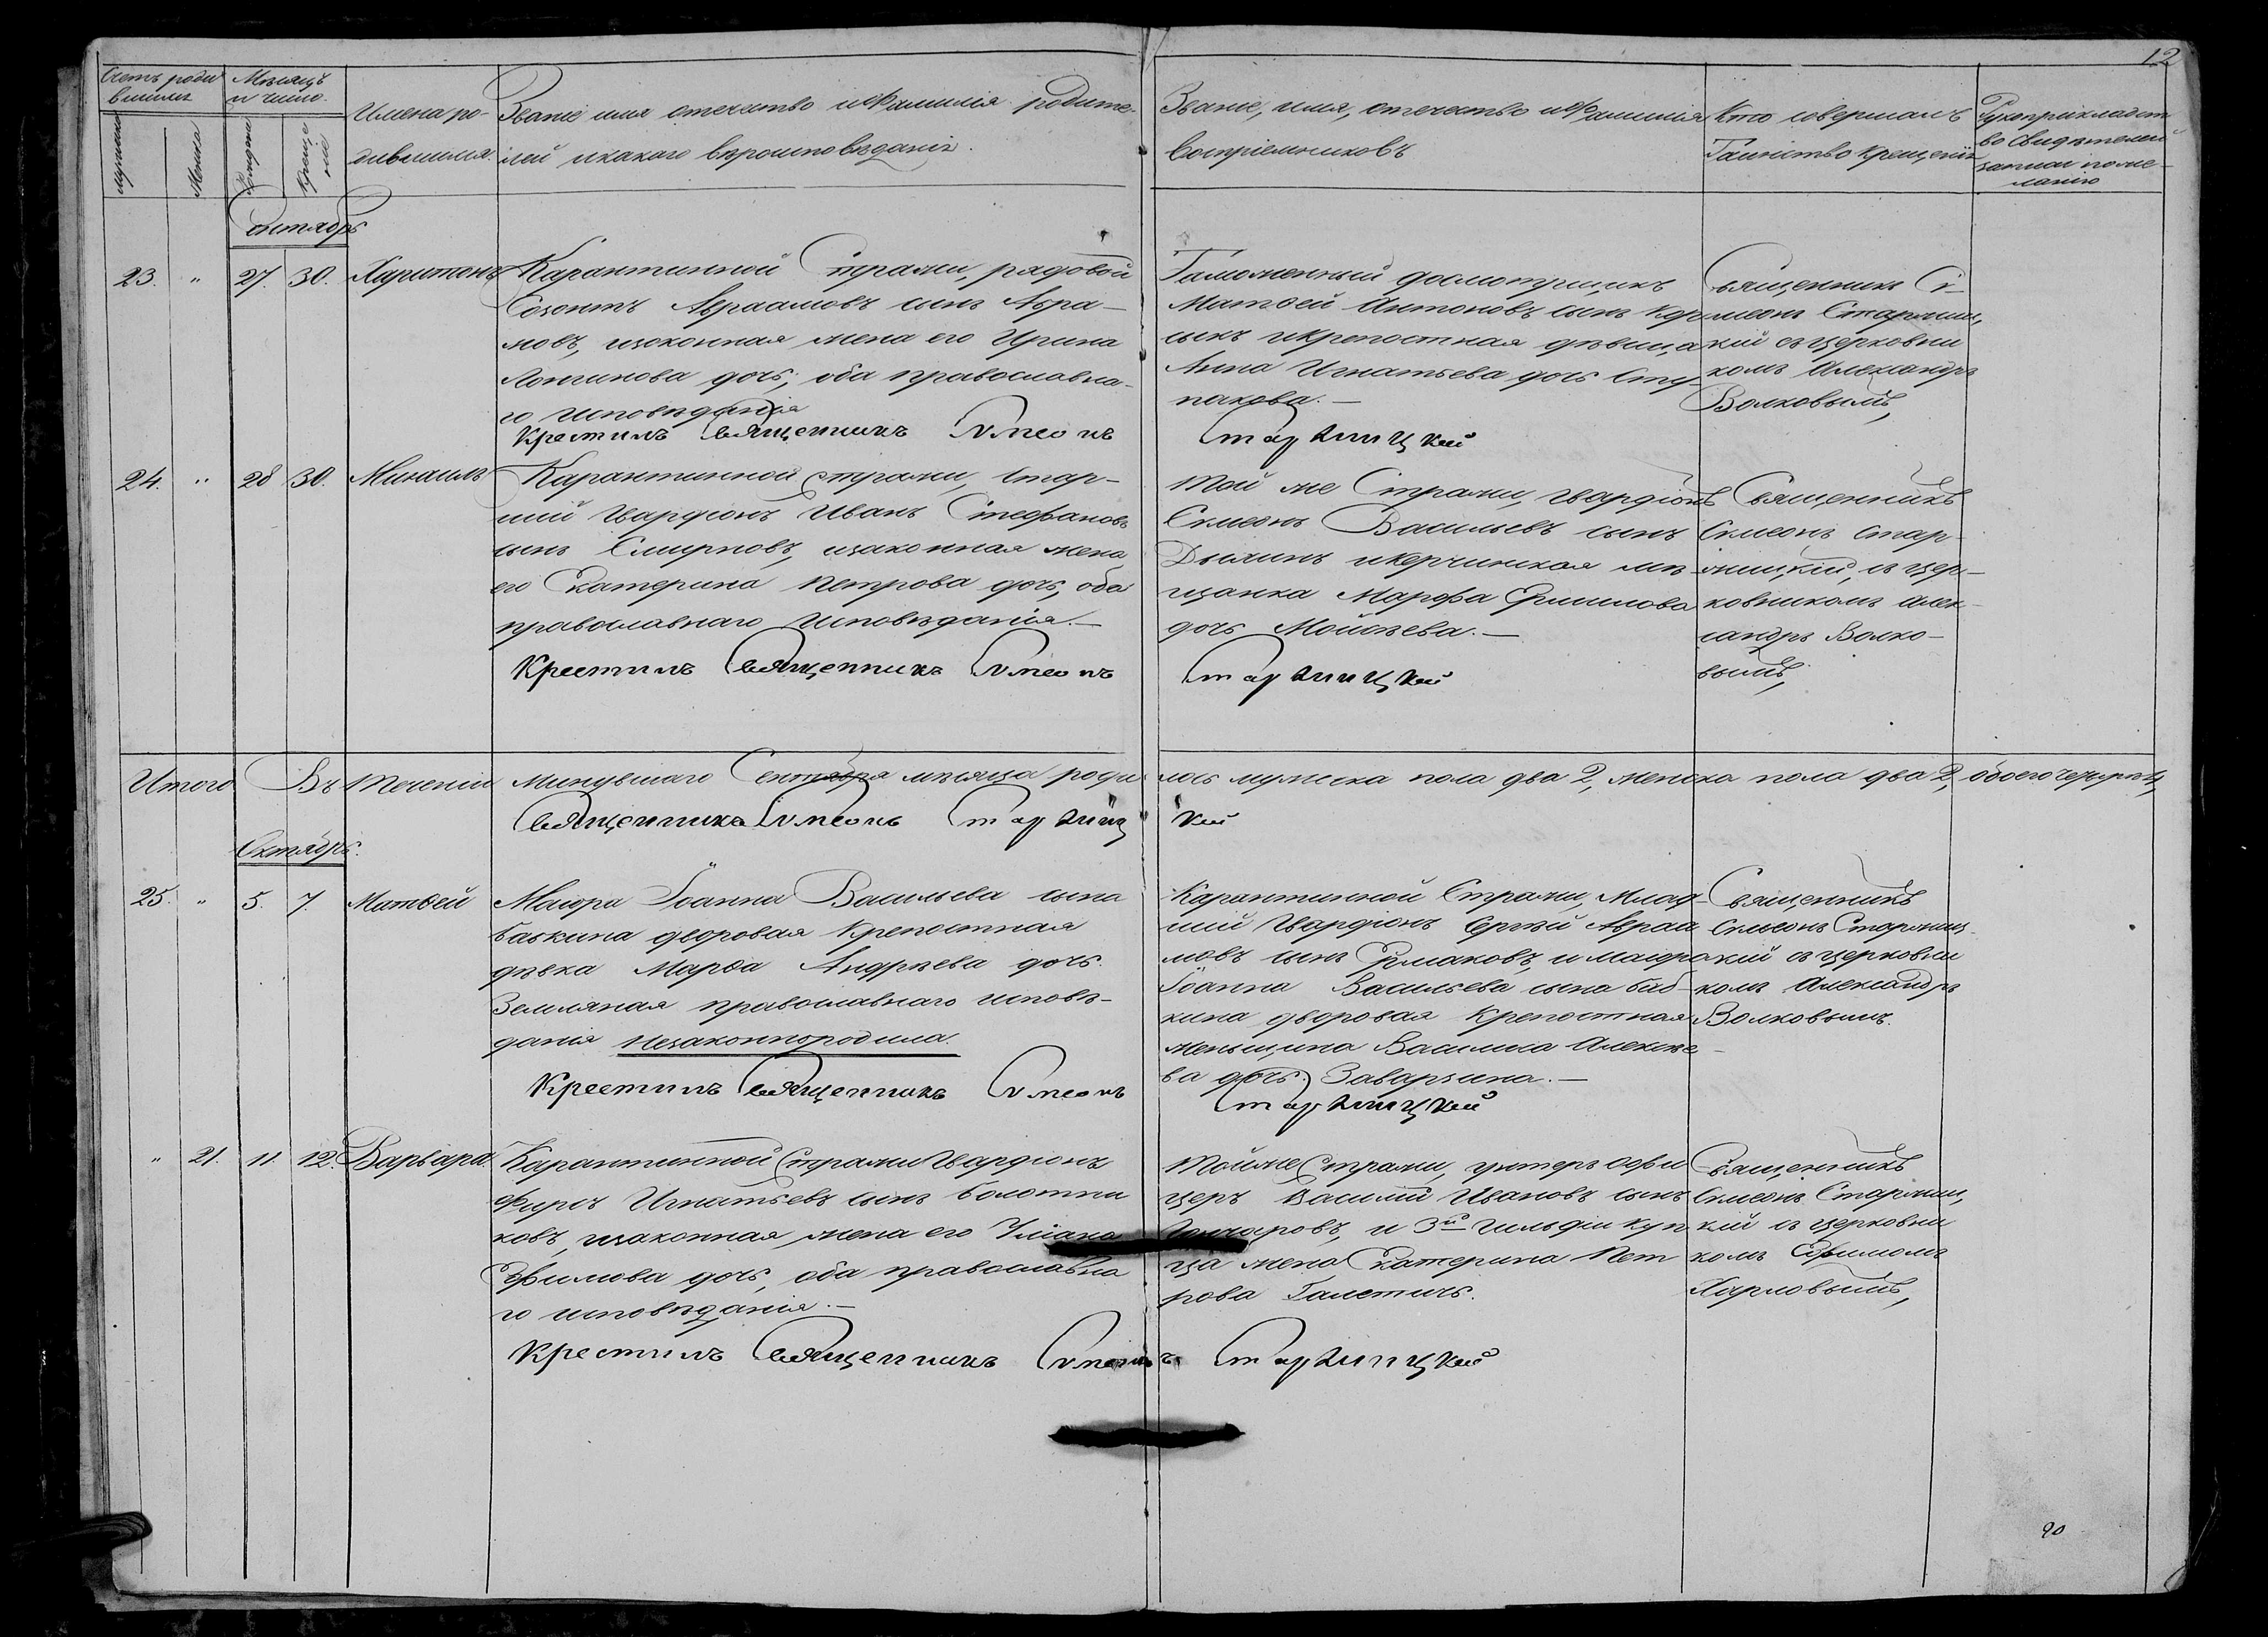 12
Счетъ роди
вшихся
Мѣсяцъ
и число.
Мужеска
Женска
Рожденія
Креще
нія
Имена ро-
дившихся.
Званіе имя отечество и фамилія родите-
лей и какаго вѣроисповѣданія.
Званіе, имя, отечество и фамилія
воспріемниковъ
Кто совершалъ
Таинство крещенія
Рукоприкладст
во свидѣтелей
записи по же-
ланію
Сентябрь
23. " 27. 30. Харитонъ
Карантинной Стражи, рядовой
Созонтъ Авраамовъ сынъ Абра-
мовъ, изаконная жена его Ирина
Логинова дочь, оба православна-
го исповѣданія
Крестилъ Священникъ Симеонъ
Таможенный досмотрщикъ
Матѳей Антоновъ сынъ
сынъ и крепостная дѣвица
Анна Игнатьева дочь
пакова.—
Старжицкий
Священникъ Си-
меонъ Старжиц,
кій съ церковни
комъ Александр
Волковымъ,
24. " 28 30. Михаилъ
Карантинной стражи, Стар-
шій Гвардіонъ Иванъ Стефановъ
сынъ Смирновъ, изаконная жена
его Екатерина Петрова дочь, оба
православнаго исповѣданія.—
Крестилъ Священникъ Симеонъ
Той же Стражи, гвардіонъ
Симеонъ Васильевъ сынъ
и Керчинская мѣ-
щанка Марфа
дочь Мойсѣева.—
Старжицкий
Священникъ
Симеонъ Стар-
жицкій, съ цер-
ковникомъ Алек-
сандръ Волко-
вымъ,
Итого Въ теченіи минувшаго Сентября мѣсяца роди лось мужеска пола два 2, женска пола два 2, обоего четыре 4,
Священникъ Симеонъ Старжиц кий
Октябрь.
25. " 5. 7. Матвей
Маіора Іоанна Васильева сына
Бабкина дворовая крепостная
дѣвка Марѳа Андрѣева дочь
Земляная православнаго исповѣ-
данія незаконнородила.
Крестилъ Священникъ Симеонъ
Карантинной Стражи, Млад-
шій Гвардіонъ Сергѣй Авраа
мовъ сынъ Ермаковъ, и маіора
Іоанна Васильева сына Баб-
кина дворовая крепостная
женьщина Василиса Алексѣе
ва дочь Заварзина.—
Старжицкий
Священникъ
Симеонъ Старжиц-
кій съ церковни
комъ Александръ
Волковымъ.
" 21. 11. 12. Варвара.
Карантинной Стражи Гвардіонъ
Фирсъ Игнатьевъ сынъ Болотни
ковъ, изаконная жена его Уліана
Ефимова дочь, оба православна
го исповѣданія.—
Крестилъ Священникъ Симеонъ Старжицкий
Той же Стражи, унтеръ офи
церъ Василий Ивановъ сынъ
Гончаровъ, и 3й гильдіи куп
ца жена Екатерина Пет
рова Галетичъ.
Священникъ
Симеонъ Старжиц,
кій съ церковни
комъ Ефимомъ
Харловымъ,
90